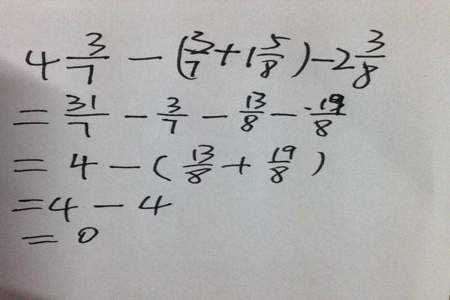 4 3/7 - (3/7 + 1 5/8) - 2 3/8
= 31/7 - 3/7 - 13/8 - 19/8
= 4 - (13/8 + 19/8)
= 4 - 4
= 0